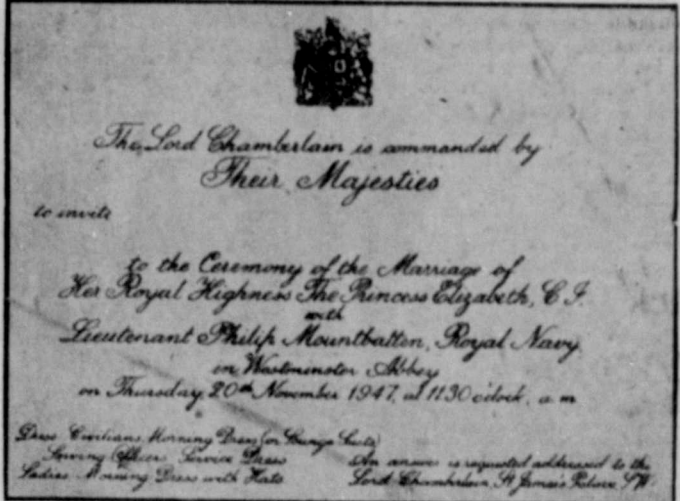 The Lord Chamberlain is commanded by
Their Majesties
to invite
to the Ceremony of the Marriage of
Her Royal Highness The Princess Elizabeth, C.I.
with
Lieutenant Philip Mountbatten, Royal Navy
in Westminster Abbey
on Thursday, 20th November 1947, at 11.30 o'clock, a.m.
Dress: Civilians, Morning Dress (or Lounge Suits)
Serving Officers Service Dress
Ladies Morning Dress with Hats
An answer is requested addressed to the
Lord Chamberlain, St James's Palace, S.W.